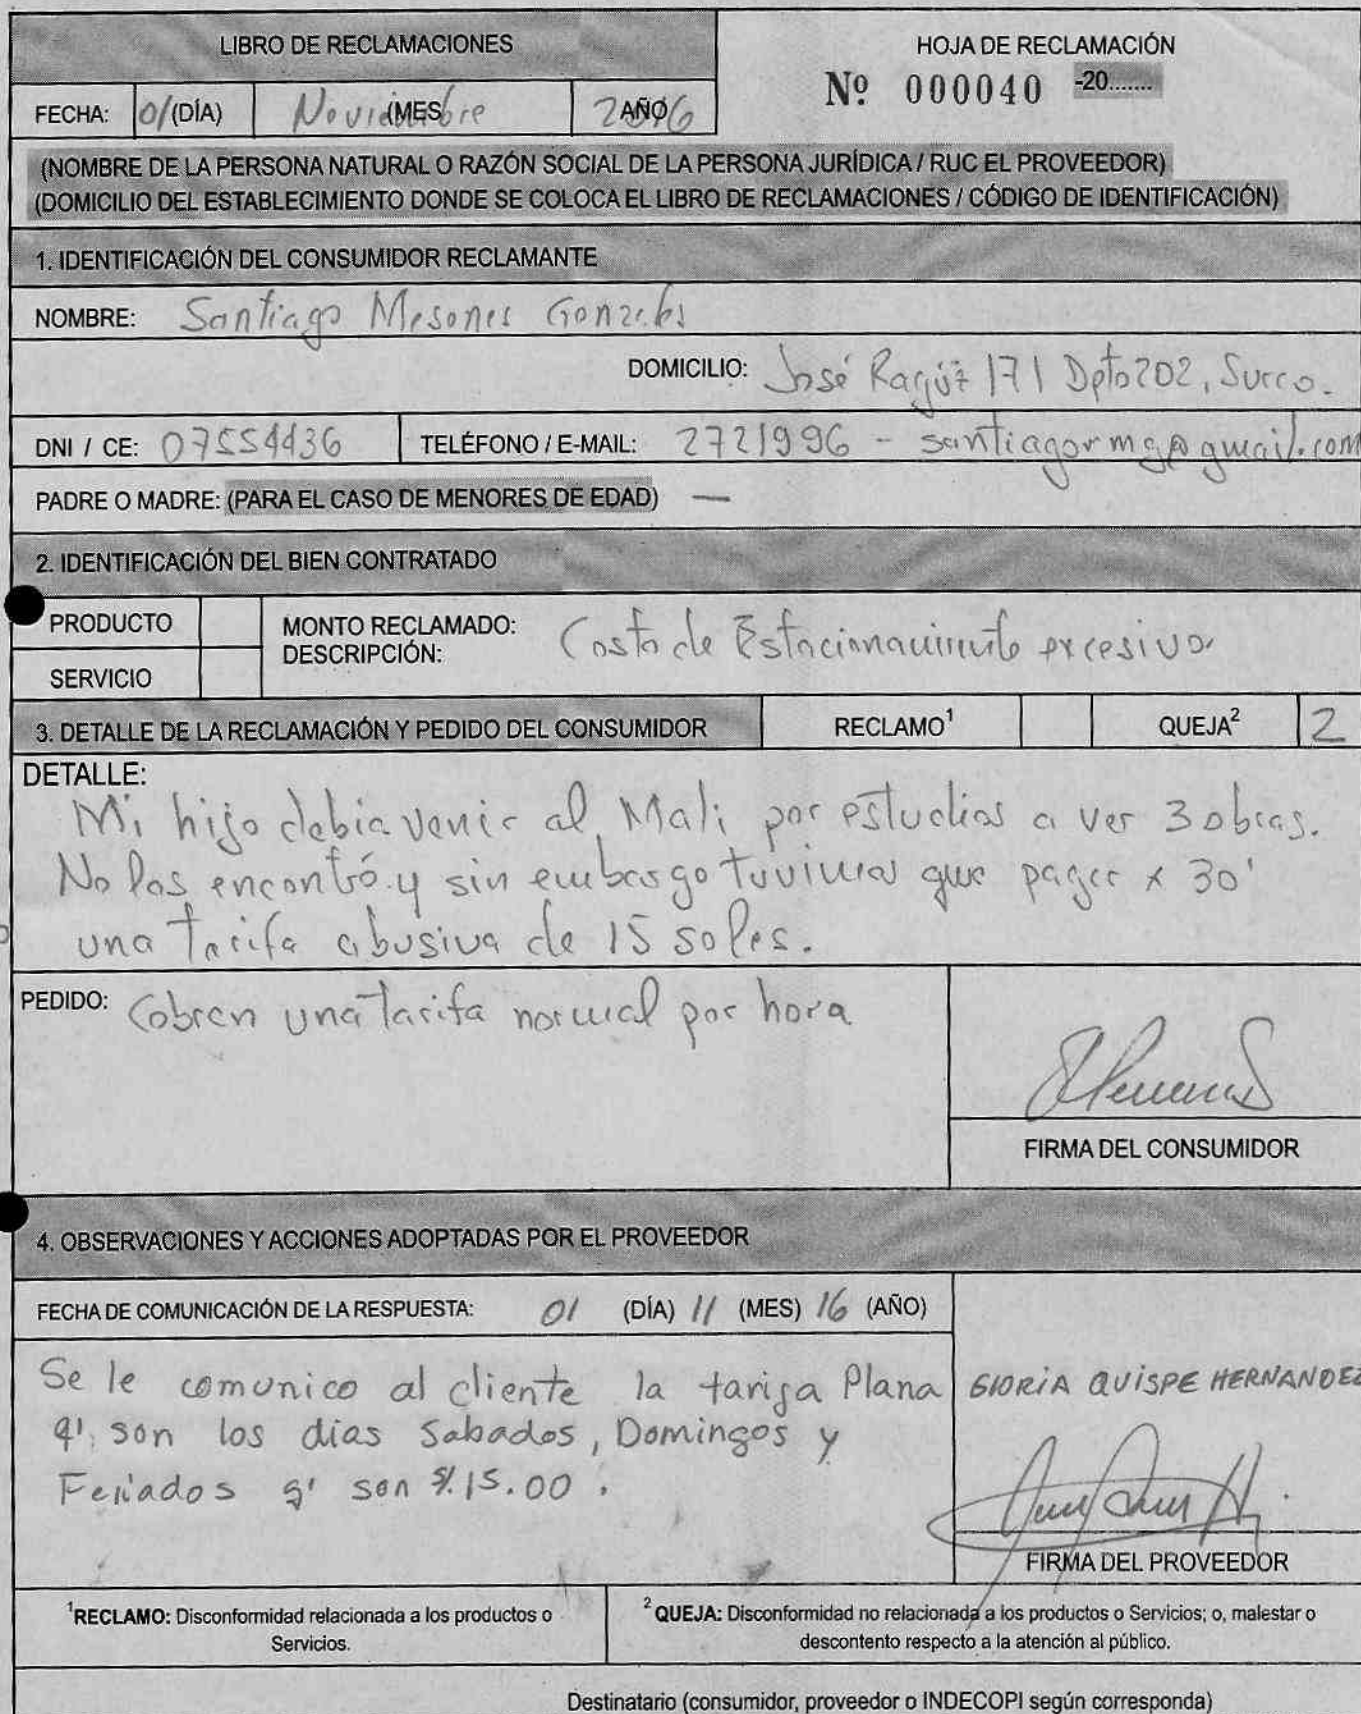 LIBRO DE RECLAMACIONES
HOJA DE RECLAMACIÓN
Nº 000040 -20.......
FECHA: 01 (DÍA) Noviembre (MES) 2016 AÑO
(NOMBRE DE LA PERSONA NATURAL O RAZÓN SOCIAL DE LA PERSONA JURÍDICA / RUC EL PROVEEDOR)
(DOMICILIO DEL ESTABLECIMIENTO DONDE SE COLOCA EL LIBRO DE RECLAMACIONES / CÓDIGO DE IDENTIFICACIÓN)
1. IDENTIFICACIÓN DEL CONSUMIDOR RECLAMANTE
NOMBRE: Santiago Mesones Gonzales
DOMICILIO: José 171 Dpto 202, Surco.
DNI / CE: 07554436 TELÉFONO / E-MAIL: 2721996 - santiagormg@gmail.com
PADRE O MADRE: (PARA EL CASO DE MENORES DE EDAD) —
2. IDENTIFICACIÓN DEL BIEN CONTRATADO
PRODUCTO
SERVICIO
MONTO RECLAMADO:
DESCRIPCIÓN: Costo de Estacionamiento excesivo
3. DETALLE DE LA RECLAMACIÓN Y PEDIDO DEL CONSUMIDOR RECLAMO¹ QUEJA² 2
DETALLE:
Mi hijo debia venir al Mali por estudios a ver 3 obras.
No las encontró y sin embargo tuvimos que pagar x 30'
una tarifa abusiva de 15 soles.
PEDIDO: Cobren una tarifa normal por hora
FIRMA DEL CONSUMIDOR
4. OBSERVACIONES Y ACCIONES ADOPTADAS POR EL PROVEEDOR
FECHA DE COMUNICACIÓN DE LA RESPUESTA: 01 (DÍA) 11 (MES) 16 (AÑO)
Se le comunico al cliente la tarifa Plana
q' son los dias Sabados, Domingos y
Feriados q' son S/. 15.00.
GLORIA QUISPE HERNANDEZ
FIRMA DEL PROVEEDOR
¹RECLAMO: Disconformidad relacionada a los productos o
Servicios.
² QUEJA: Disconformidad no relacionada a los productos o Servicios; o, malestar o
descontento respecto a la atención al público.
Destinatario (consumidor, proveedor o INDECOPI según corresponda)